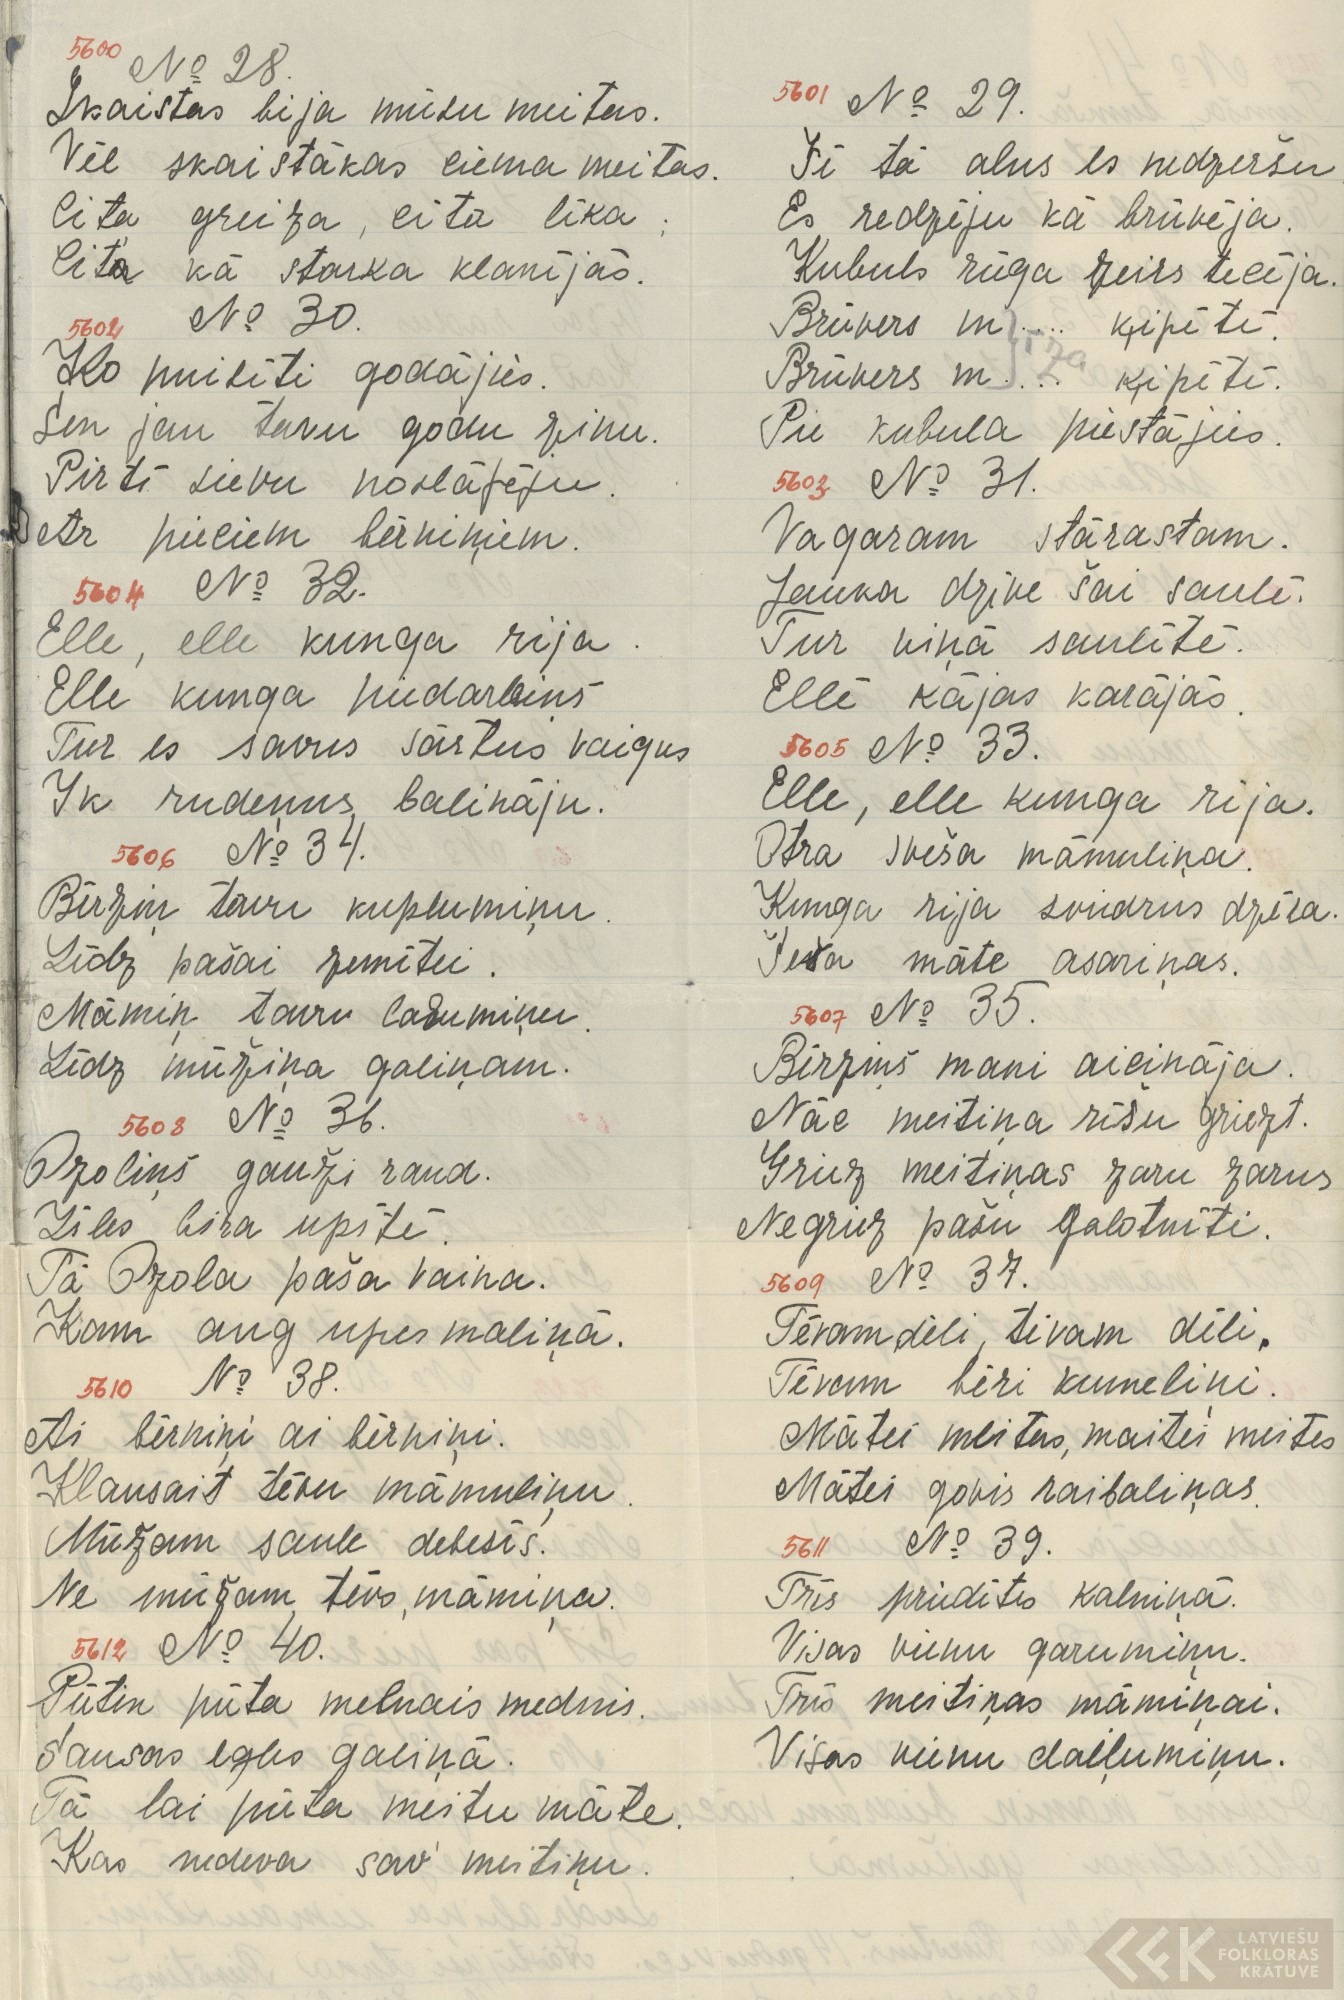 5600 No 28.
Skaistas bija mūsu meitas.
Vēl skaistākas ciema meitas.
Cita greiza, cita līka;
Cita kā starka klanījās.
5601 No 29.
Šī tā alus es nedzeršu
Es redzēju kā brūvēja.
Kubuls rūga zeirs tecēja.
Brūvers m.... ķipētē.
Brūvers m.... ķipētē.
Pie kubula piestājies.
5602 No 30.
Ko puisīti godājies.
Sen jau tavu godu zinu.
Pirtī sievu noslāpēju.
Ar pieciem bērniņiem.
5603 No 31.
Vagaram stārastam.
Jauka dzīve šai saulē.
Tur viņā saulītē.
Ellē kājas karājās.
5604 No 32.
Elle, elle kunga rija.
Elle kunga piedarbiņš
Tur es savus sārtus vaigus
Ik rudeņus balināju.
5605 No 33.
Elle, elle kunga rija.
Otra sveša māmuliņa.
Kunga rija sviedrus dzēra.
Sveša māte asariņas.
5606 No 34.
Bērziņ tavu kuplumiņu.
Līdz pašai zemītei.
Māmiņ tavu labumiņu.
Līdz mūžiņa galiņam.
5607 No 35.
Bērziņš mani aicināja.
Nāc meitiņa rīšu griezt.
Griez meitiņas zaru zarus
Negriez pašu galotnīti.
5608 No 36.
Ozoliņš gauži raud.
Zīles bira upītē.
Tā Ozola paša vaina.
Kam aug upes maliņā.
5609 No 37.
Tēvam dēli, tēvam dēli.
Tēvam bēri kumeliņi.
Mātei meitas, maitei meites
Mātei govis raibaliņas.
5610 No 38.
Ai bērniņi ai bērniņi.
Klausait tēvu māmuliņu.
Mūžam saule debesīs.
Ne mūžam tēvs, māmiņa.
5611 No 39.
Trīs priedītes kalniņā.
Visas vienu garumiņu.
Trīs meitiņas māmiņai.
Visas vienu daiļumiņu.
5612 No 40.
Pūtin pūta melnais mednis.
Sausas egles galiņā.
Tā lai pūta meitu māte.
Kas nedeva sav' meitiņu.
LATVIEŠU
FOLKLORAS
KRĀTUVE